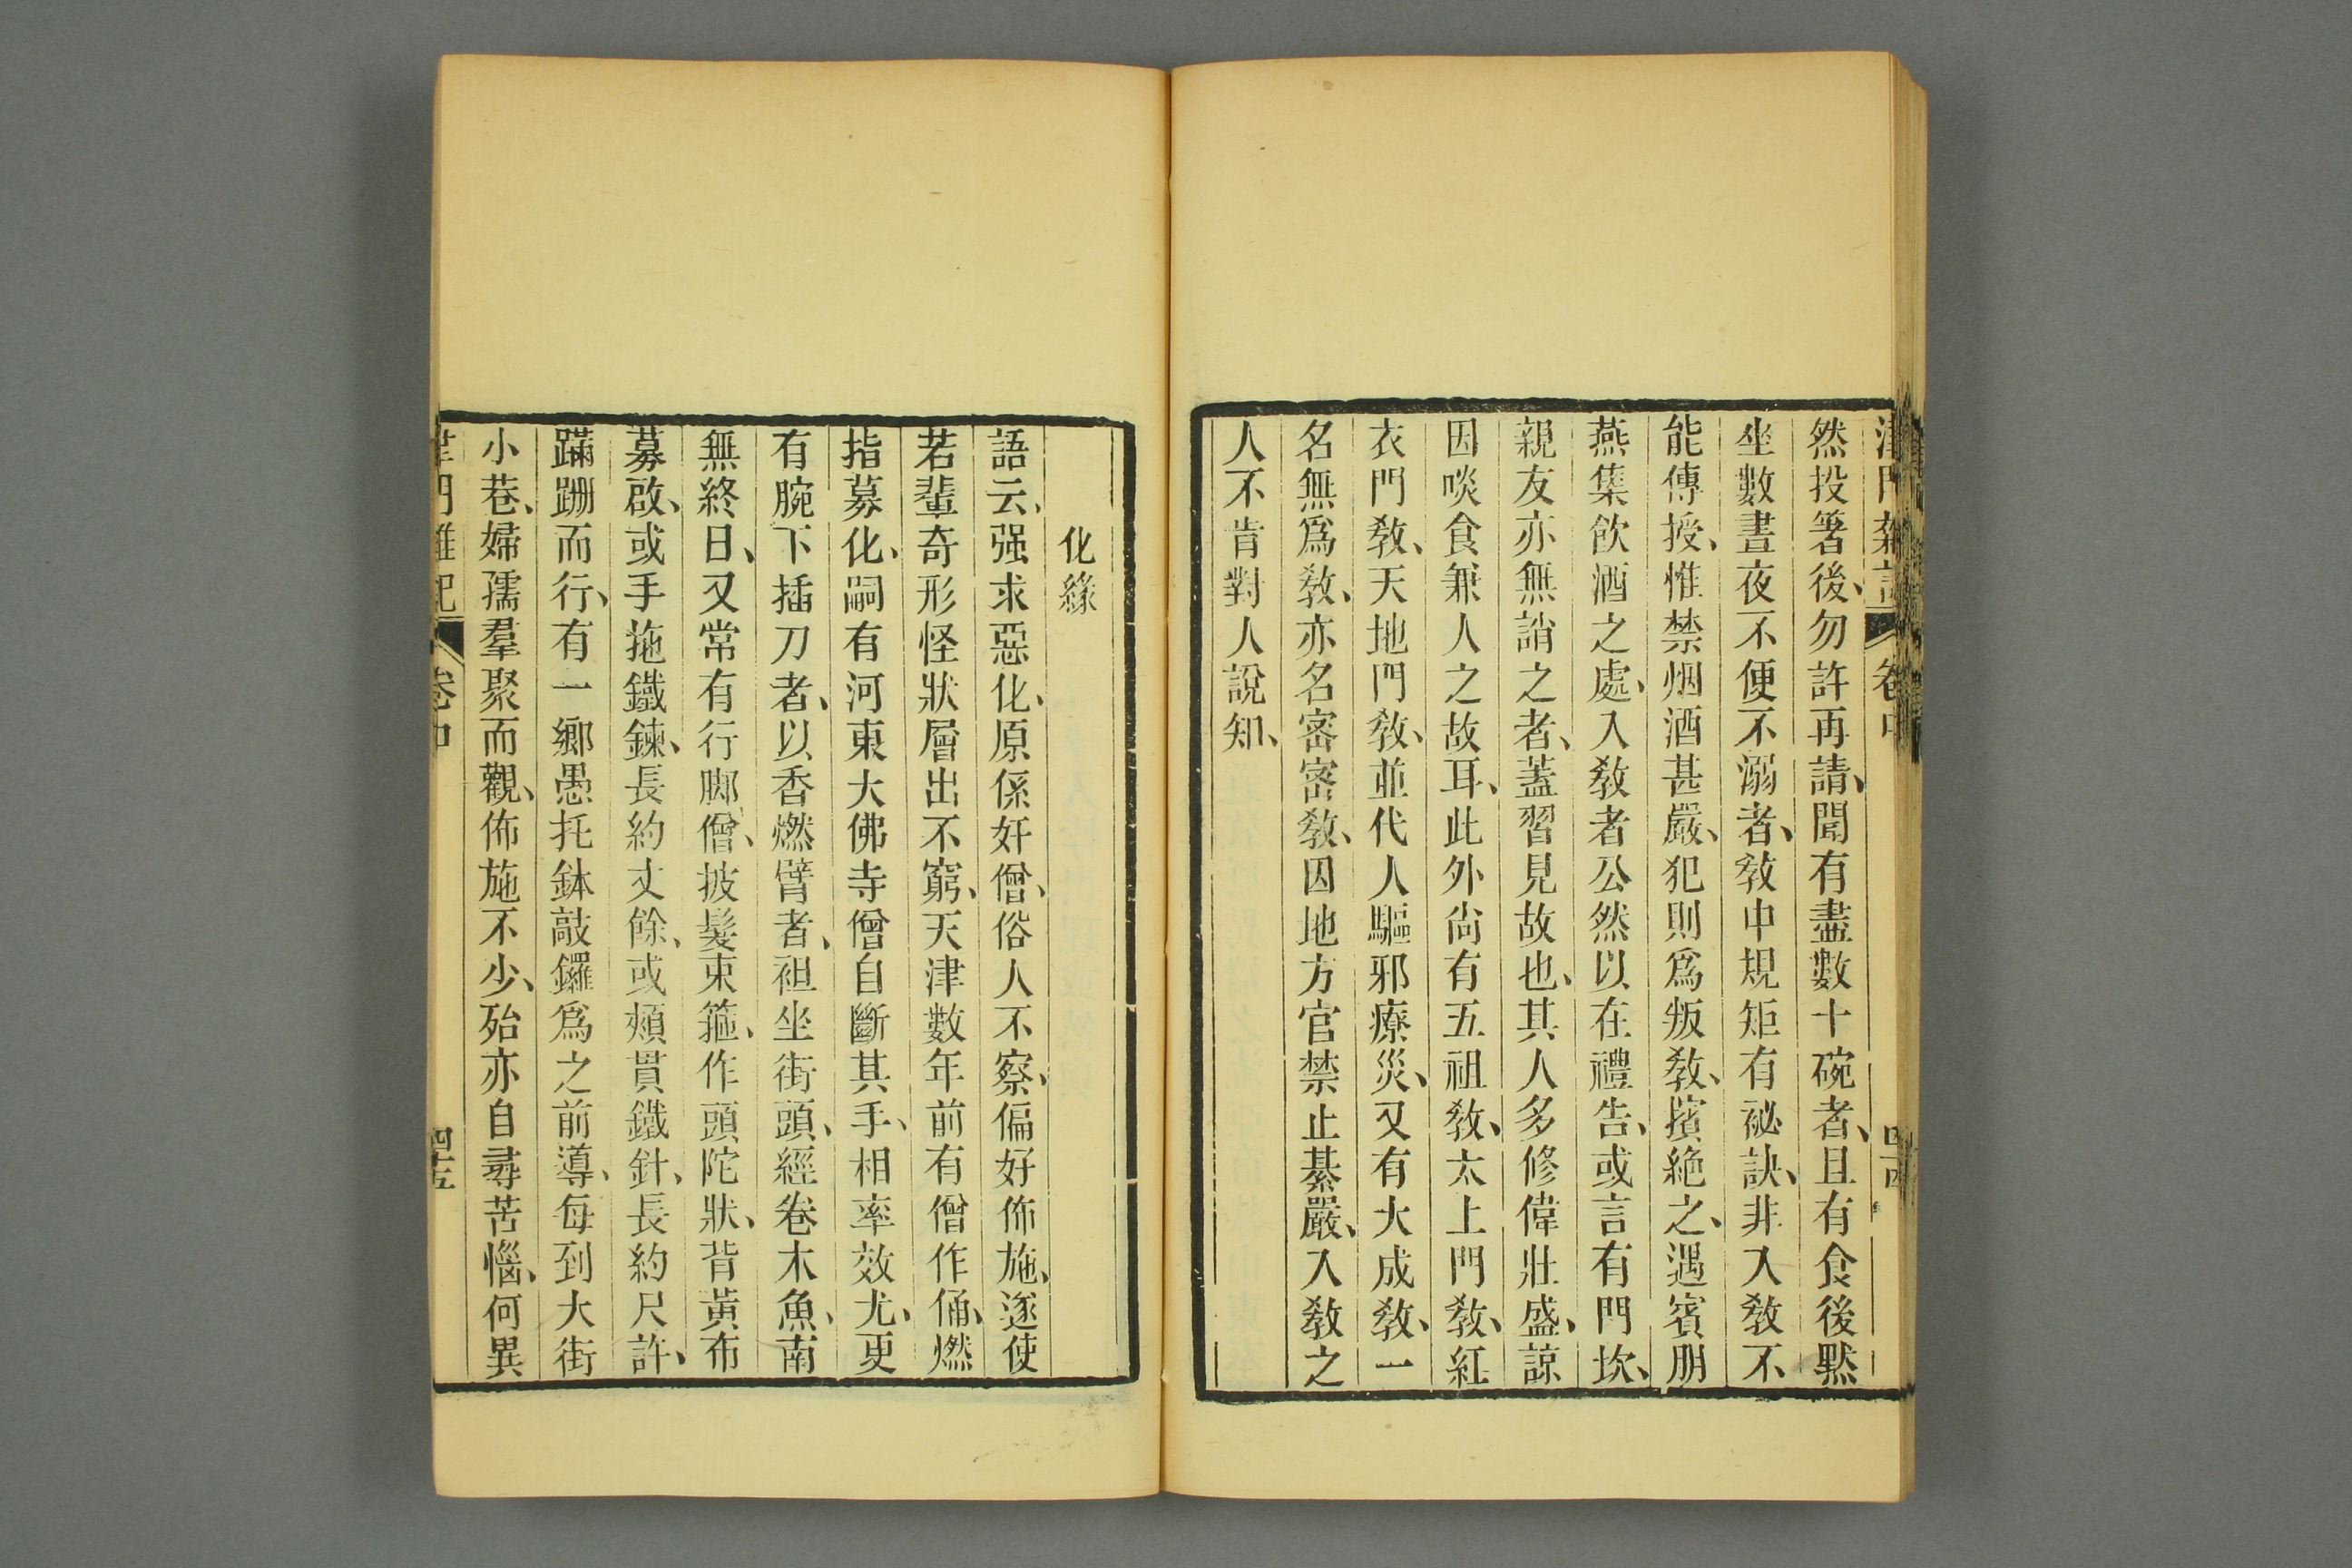 津門雜記 卷中
然投箸後、勿許再請、聞有盡數十碗者、且有食後黙
坐數晝夜不便不溺者、敎中規矩有祕訣、非入敎不
能傳授、惟禁烟酒甚嚴、犯則爲叛敎、擯絶之、遇賓朋
燕集飮酒之處、入敎者公然以在禮告、或言有門坎、
親友亦無誚之者、蓋習見故也、其人多修偉壯盛、諒
因啖食兼人之故耳、此外尙有五祖敎、太上門敎、紅
衣門敎、天地門敎、並代人驅邪療災、又有大成敎、一
名無爲敎、亦名密密敎、因地方官禁止綦嚴、入敎之
人不肯對人說知、
化緣
語云、强求惡化、原係奸僧、俗人不察、偏好佈施、遂使
若輩奇形怪狀層出不窮、天津數年前有僧作俑、燃
指募化、嗣有河東大佛寺僧自斷其手、相率效尤、更
有腕下插刀者、以香燃臂者、袒坐街頭、經卷木魚、南
無終日、又常有行脚僧、披髮束箍、作頭陀狀、背黃布
募啟、或手拖鐵鍊、長約丈餘、或頰貫鐵針、長約尺許、
蹣跚而行、有一鄉愚托鉢敲鑼爲之前導、每到大街
小巷、婦孺羣聚而觀、佈施不少、殆亦自尋苦惱、何異
津門雜記 卷中 四十五